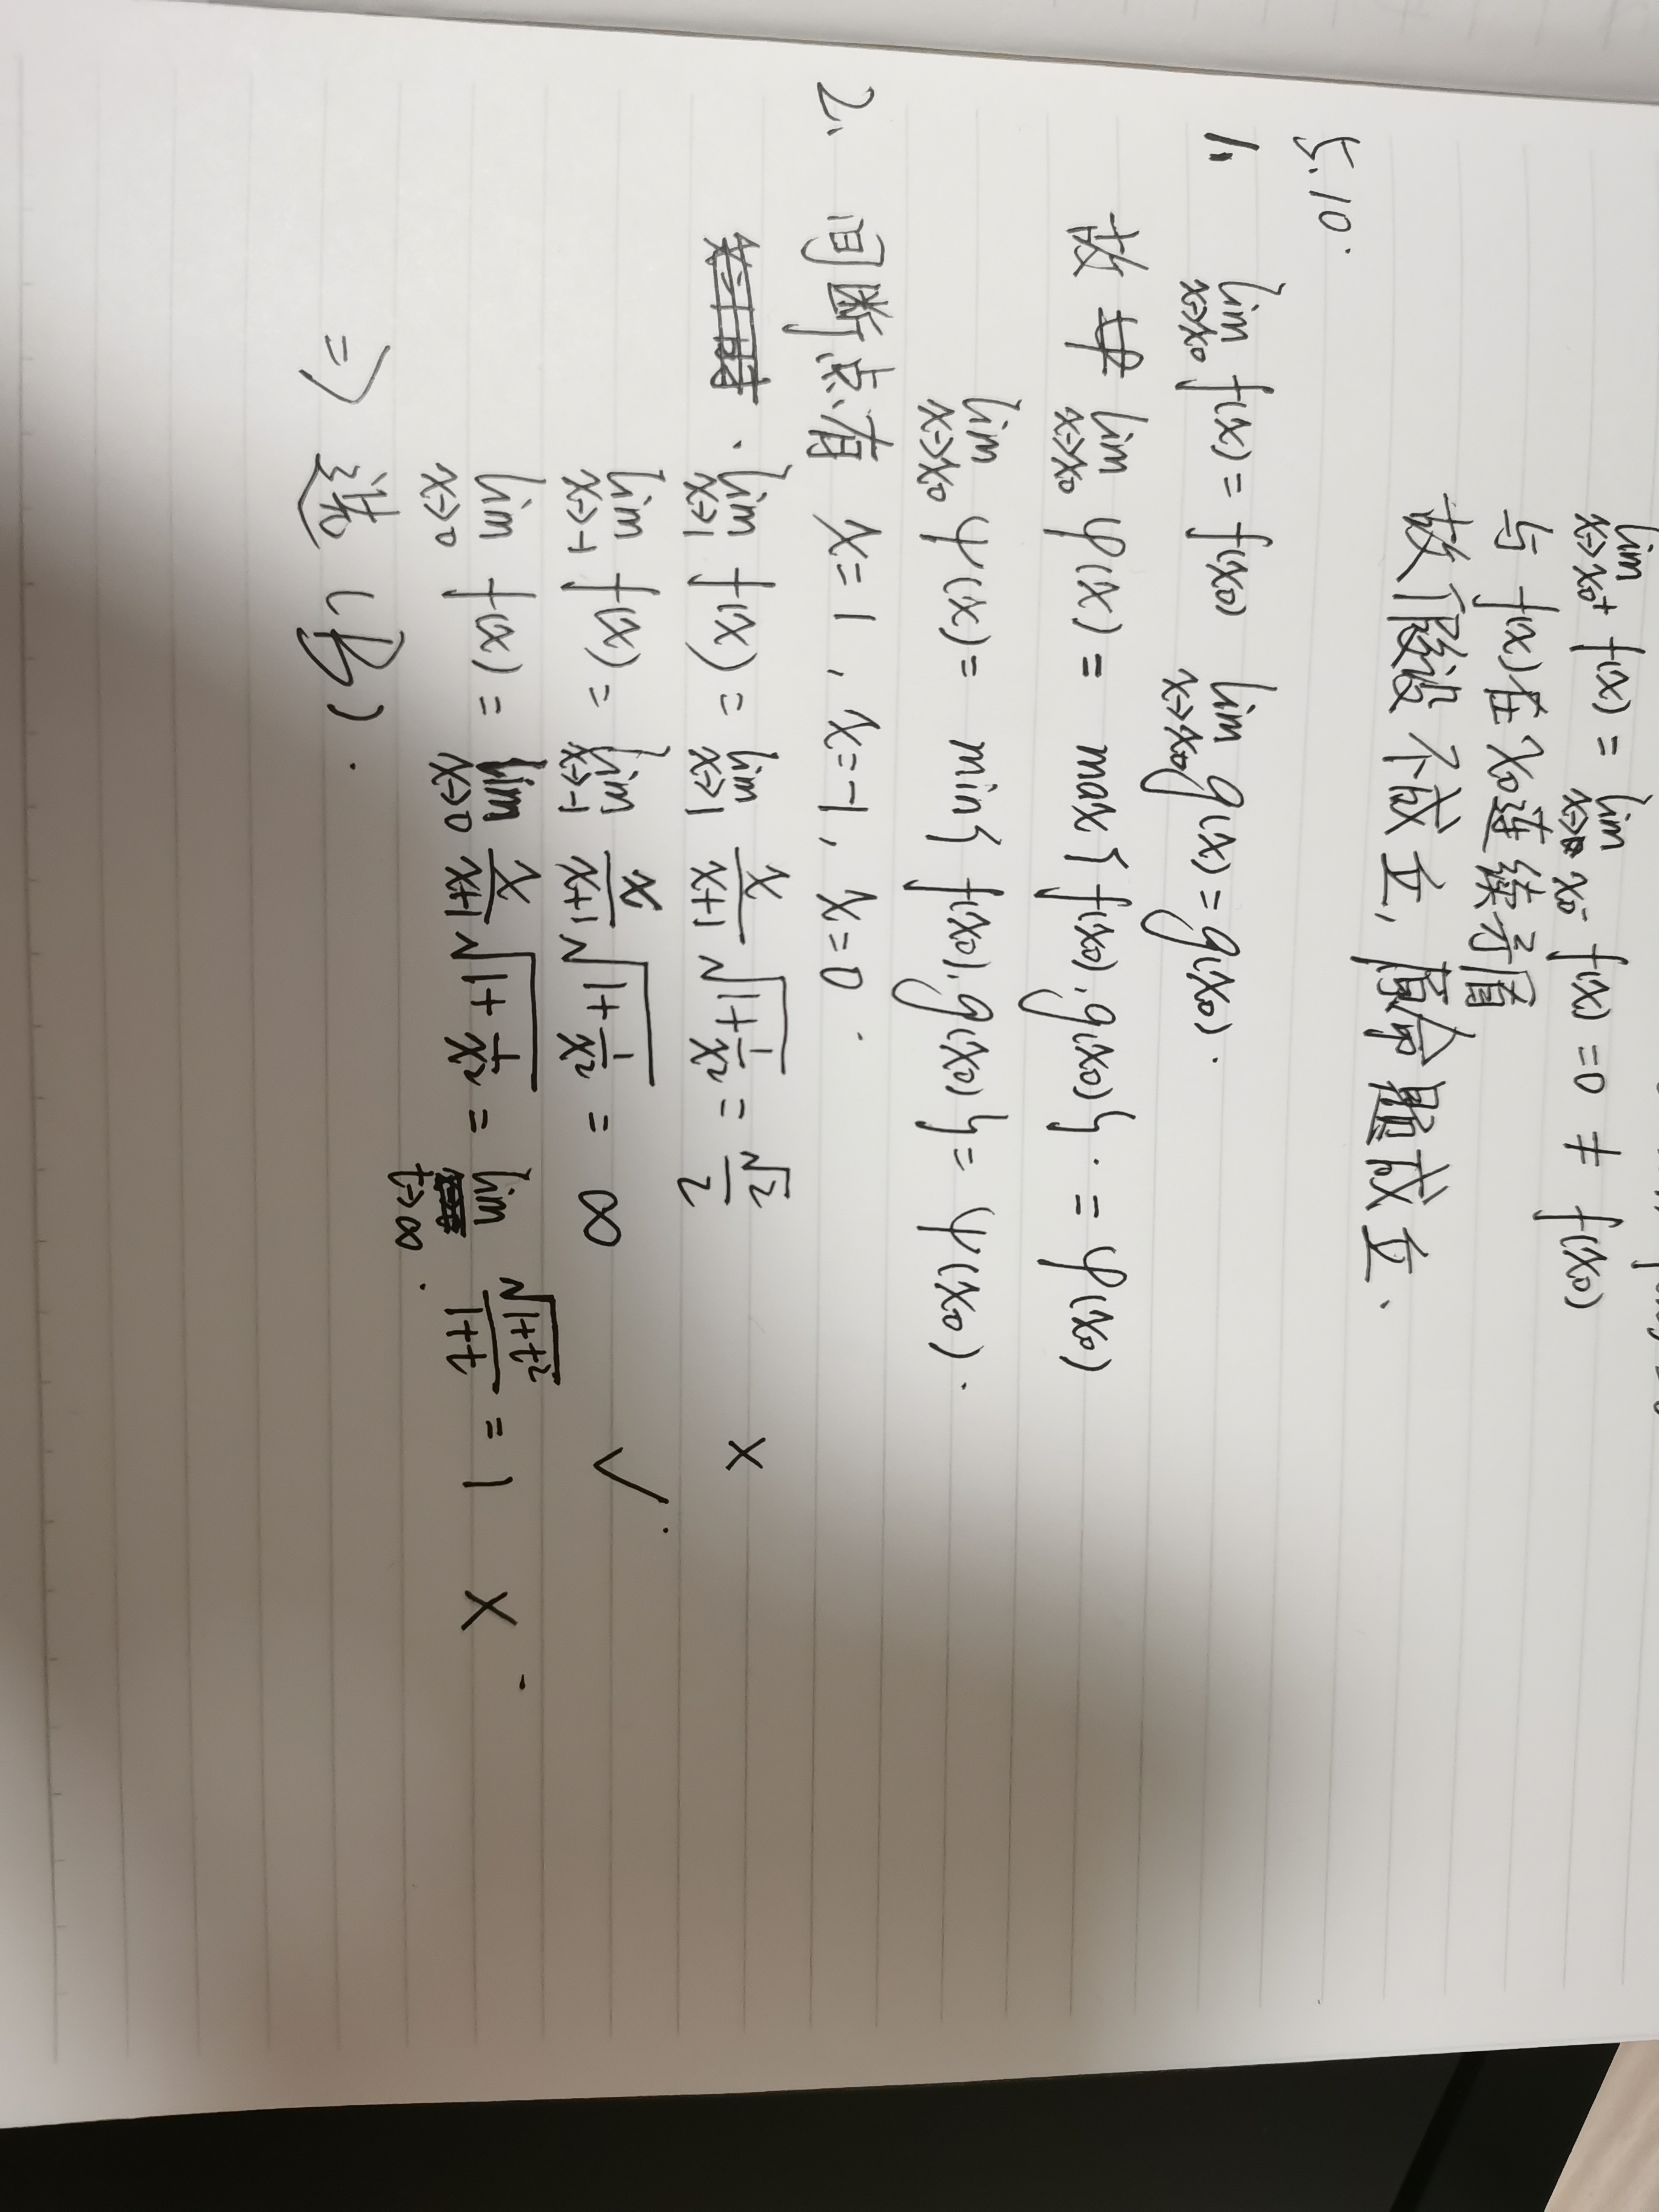 lim x→x₀⁺ f(x) = lim x→x₀⁻ f(x) = 0 ≠ f(x₀)
与 f(x)在x₀连续矛盾
故假设不成立,原命题成立.
5.10.
1. lim x→x₀ f(x) = f(x₀) lim x→x₀ g(x) = g(x₀).
故 lim x→x₀ φ(x) = max{f(x₀), g(x₀)}. = φ(x₀)
lim x→x₀ ψ(x) = min{f(x₀), g(x₀)} = ψ(x₀).
2. 间断点有 x=1, x=-1, x=0.
lim x→1 f(x) = lim x→1 x/(x+1) √(1+1/x²) = √2/2 ×
lim x→-1 f(x) = lim x→-1 x/(x+1) √(1+1/x²) = ∞ ✓
lim x→0 f(x) = lim x→0 x/(x+1) √(1+1/x²) = lim t→∞ √(1+t²)/(1+t) = 1 ×
⇒ 选 (B).